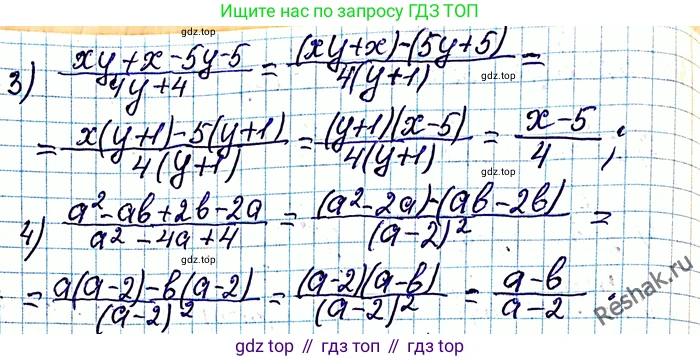 Ищите нас по запросу ГДЗ ТОП
3) (xy+x-5y-5)/(4y+4) = ((xy+x)-(5y+5))/(4(y+1)) =
= (x(y+1)-5(y+1))/(4(y+1)) = ((y+1)(x-5))/(4(y+1)) = (x-5)/4 ;
4) (a²-ab+2b-2a)/(a²-4a+4) = ((a²-2a)-(ab-2b))/(a-2)² =
= (a(a-2)-b(a-2))/(a-2)² = ((a-2)(a-b))/(a-2)² = (a-b)/(a-2) .
Reshak.ru
gdz top
gdz top
gdz top
gdz top // гдз топ // gdz top // гдз топ // gdz top